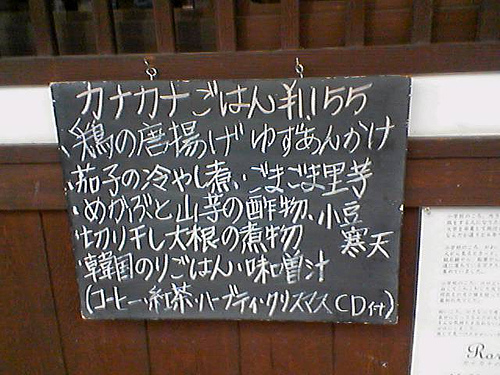 カナカナごはん ¥1,155
・鶏の唐揚げ ゆずあんかけ
・茄子の冷やし煮、ごまごま里芋
・めかぶと山芋の酢物、小豆
・切り干し大根の煮物 寒天
・韓国のりごはん・味噌汁
(コーヒー・紅茶・ハーブティ・クリスマスCD付)